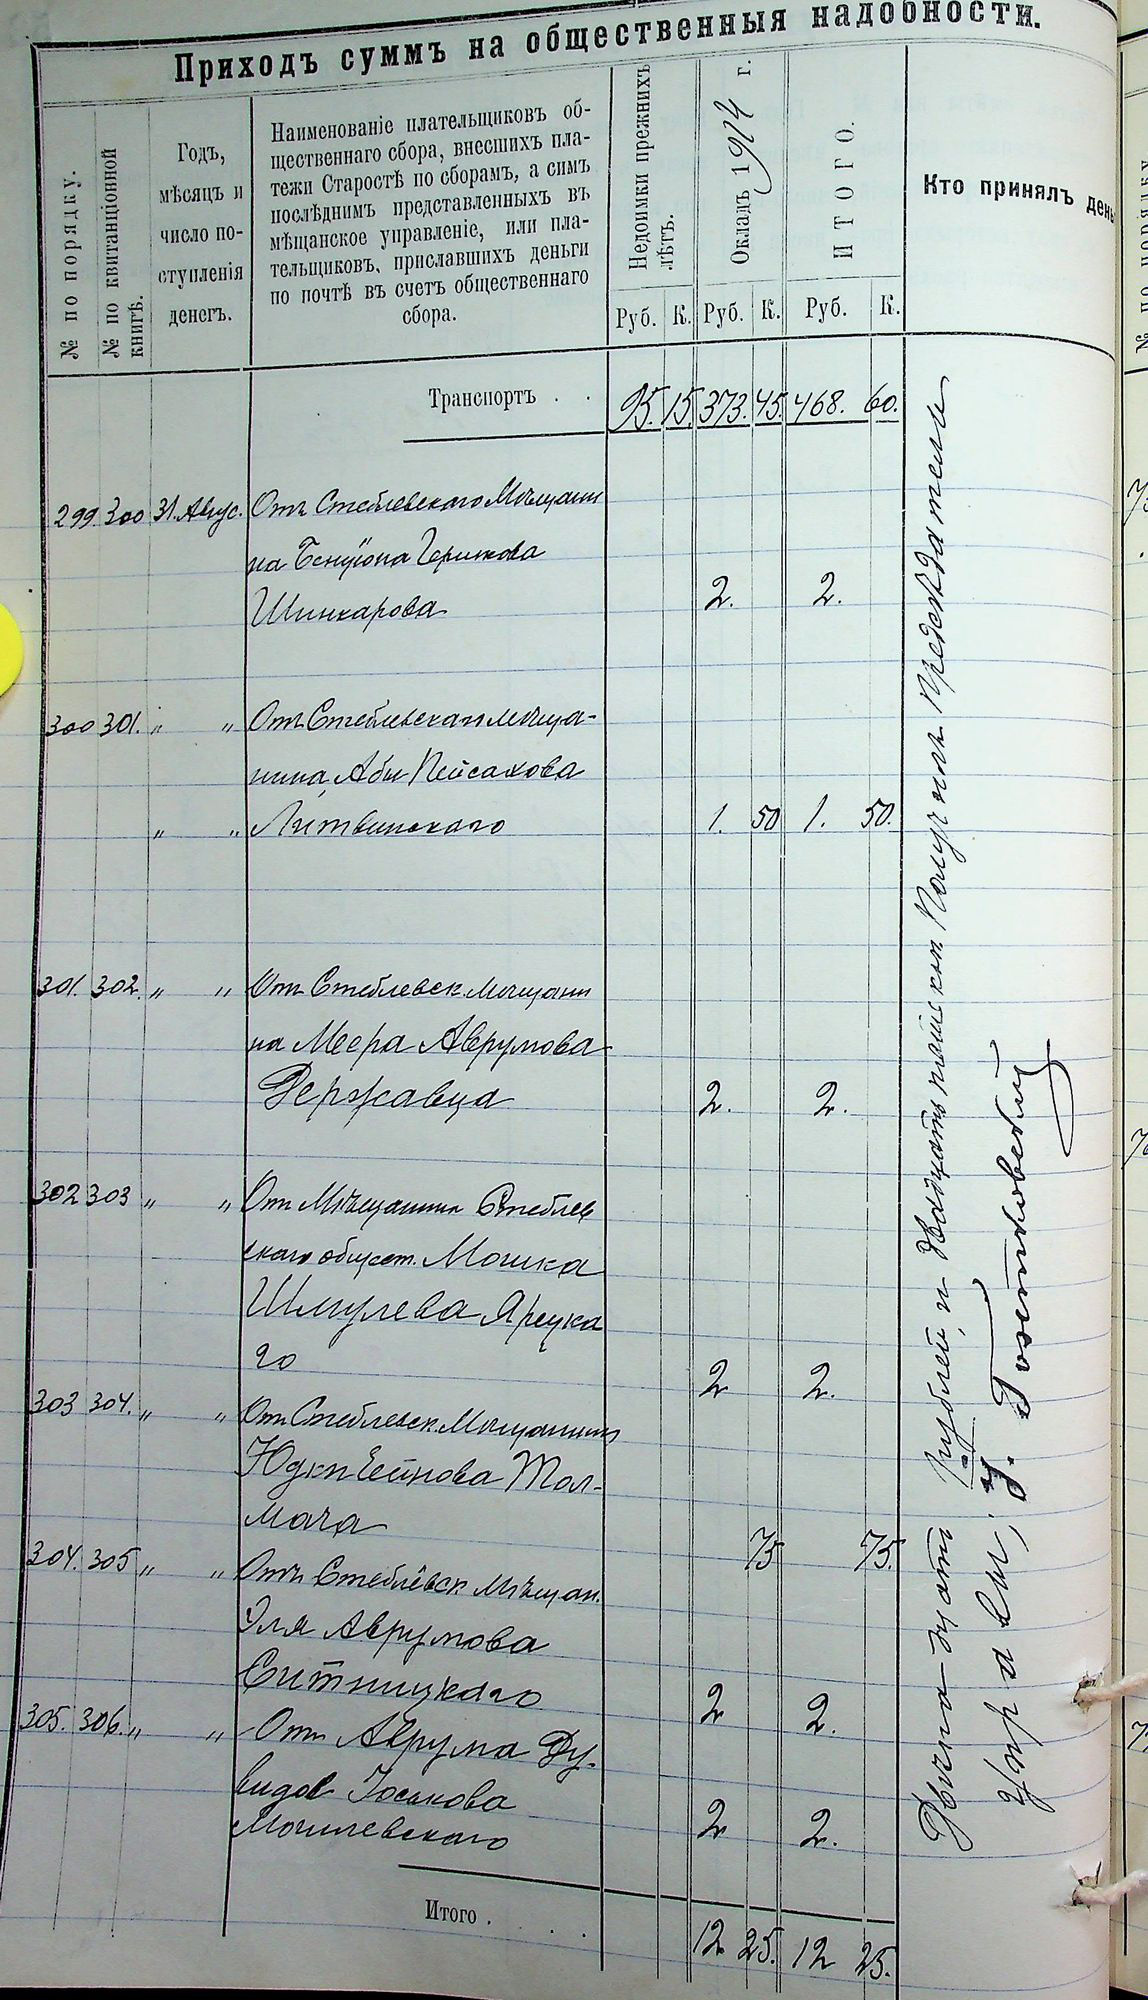 Приходъ суммъ на общественныя надобности.
№ по порядку.
№ по квитанціонной книгѣ.
Годъ,
мѣсяцъ и
число по-
ступленія
денегъ.
Наименованіе плательщиковъ об-
щественнаго сбора, внесшихъ пла-
тежи Старостѣ по сборамъ, а симъ
послѣднимъ представленныхъ въ
мѣщанское управленіе, или пла-
тельщиковъ, приславшихъ деньги
по почтѣ въ счетъ общественнаго
сбора.
Недоимки прежнихъ
лѣтъ.
Окладъ 1914 г.
ИТОГО.
Кто принялъ день
Руб. К. Руб. К. Руб. К.
Транспортъ . . 95. 15. 373. 45. 468. 60.
299 300 31. Авгус. Отъ Стеблевскаго Мѣщани
на
Шинкарова 2. 2.
300 301. " " Отъ Стеблевскаго мѣща-
нина Абы Пейсахова
" " Литвинскаго 1. 50 1. 50.
301. 302. " " Отъ Стеблевск. Мѣщани
на Меера Аврумова
Державца 2. 2.
302 303 " " От Мѣщанина Стеблев
скаго общест. Мошка
Шмулева Ярецка
го 2 2.
303 304. " " От Стеблевск. Мѣщанина
Юдки Хейнова Тол-
мача 75 75.
304. 305 " " Отъ Стеблевск Мѣщан.
Эля Аврумова
Ситницкаго 2 2.
305. 306. " " От Аврума Ду-
видов Іоськова
Могилевскаго 2 2.
Итого . . . 12 25. 12 25.
рублей и двадцать пять коп Получилъ Предсѣдатель
Управы,